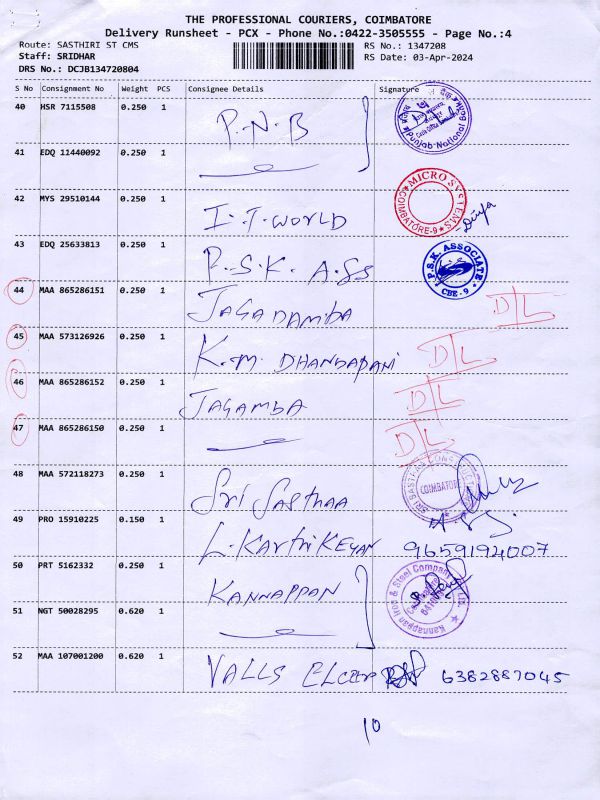 THE PROFESSIONAL COURIERS, COIMBATORE
Delivery Runsheet - PCX - Phone No.:0422-3505555 - Page No.:4
Route: SASTHIRI ST CMS RS No.: 1347208
Staff: SRIDHAR RS Date: 03-Apr-2024
DRS No.: DCJB134720804
S No Consignment No Weight PCS Consignee Details Signature
40 HSR 7115508 0.250 1 P.N.B Punjab National Bank
41 EDQ 11440092 0.250 1
42 MYS 29510144 0.250 1 I.T.WORLD MICRO SYSTEMS COIMBATORE-9 Divya
43 EDQ 25633813 0.250 1 P.S.K. A.SS P.S.K. ASSOCIATE CBE-9
44 MAA 865286151 0.250 1 JAGADAMBA D/L
45 MAA 573126926 0.250 1 K.M. DHANDAPANI D/L
46 MAA 865286152 0.250 1 JAGAMBA D/L
47 MAA 865286150 0.250 1 D/L
48 MAA 572118273 0.250 1 Sri Sasthaa SRI SASTHAA COIMBATORE
49 PRO 15910225 0.150 1 L.KARTHIKEYAN 9659194007
50 PRT 5162332 0.250 1 KANNAPPAN Kannappan Iron & Steel Company Ltd.
51 NGT 50028295 0.620 1
52 MAA 107001200 0.620 1 VALLS 6382887045
10